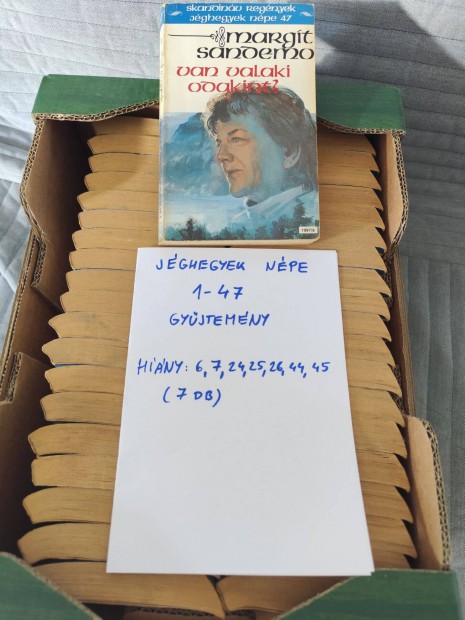 skandináv regények
jéghegyek népe 47
margit
sandemo
van valaki
odakint?
JÉGHEGYEK NÉPE
1-47
GYŰJTEMÉNY
HIÁNY: 6, 7, 24, 25, 26, 44, 45
(7 DB)